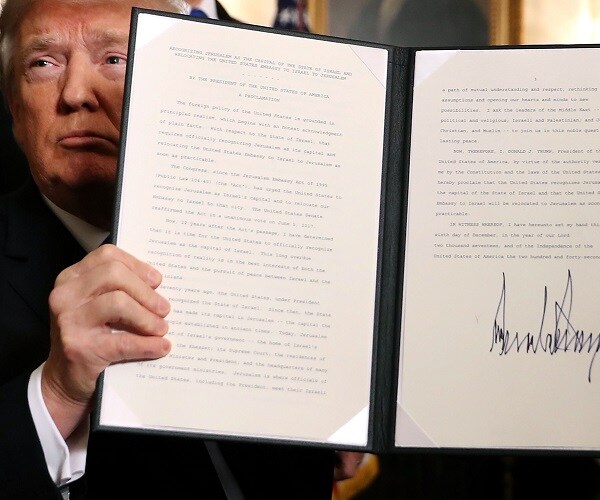 RECOGNIZING JERUSALEM AS THE CAPITAL OF THE STATE OF ISRAEL AND
RELOCATING THE UNITED STATES EMBASSY TO ISRAEL TO JERUSALEM
BY THE PRESIDENT OF THE UNITED STATES OF AMERICA
A PROCLAMATION
The foreign policy of the United States is grounded in
principled realism, which begins with an honest acknowledgment
of plain facts. With respect to the State of Israel, that
requires officially recognizing Jerusalem as its capital and
relocating the United States Embassy to Israel to Jerusalem as
soon as practicable.
The Congress, since the Jerusalem Embassy Act of 1995
(Public Law 104-45) (the "Act"), has urged the United States to
recognize Jerusalem as Israel's capital and to relocate our
Embassy to Israel to that city. The United States Senate
reaffirmed the Act in a unanimous vote on June 5, 2017.
Now, 22 years after the Act's passage, I have determined
that it is time for the United States to officially recognize
Jerusalem as the capital of Israel. This long overdue
recognition of reality is in the best interests of both the
United States and the pursuit of peace between Israel and the
recently years ago, the United States, under President
recognized the State of Israel. Since then, the State
has made its capital in Jerusalem -- the capital the
people established in ancient times. Today, Jerusalem
of Israel's government -- the home of Israel's
the Knesset; the Supreme Court; the residences of
Minister and President; and the headquarters of many
of its government ministries. Jerusalem is where officials of
the United States, including the President, meet their Israeli
a path of mutual understanding and respect, rethinking
assumptions and opening our hearts and minds to new
possibilities. I ask the leaders of the Middle East --
political and religious; Israeli and Palestinian; and J
Christian, and Muslim -- to join us in this noble quest
lasting peace.
NOW, THEREFORE, I, DONALD J. TRUMP, President of th
United States of America, by virtue of the authority ves
me by the Constitution and the laws of the United States
hereby proclaim that the United States recognizes Jerusa
the capital of the State of Israel and that the United S
Embassy to Israel will be relocated to Jerusalem as soon
practicable.
IN WITNESS WHEREOF, I have hereunto set my hand this
sixth day of December, in the year of our Lord
two thousand seventeen, and of the Independence of the
United States of America the two hundred and forty-secon